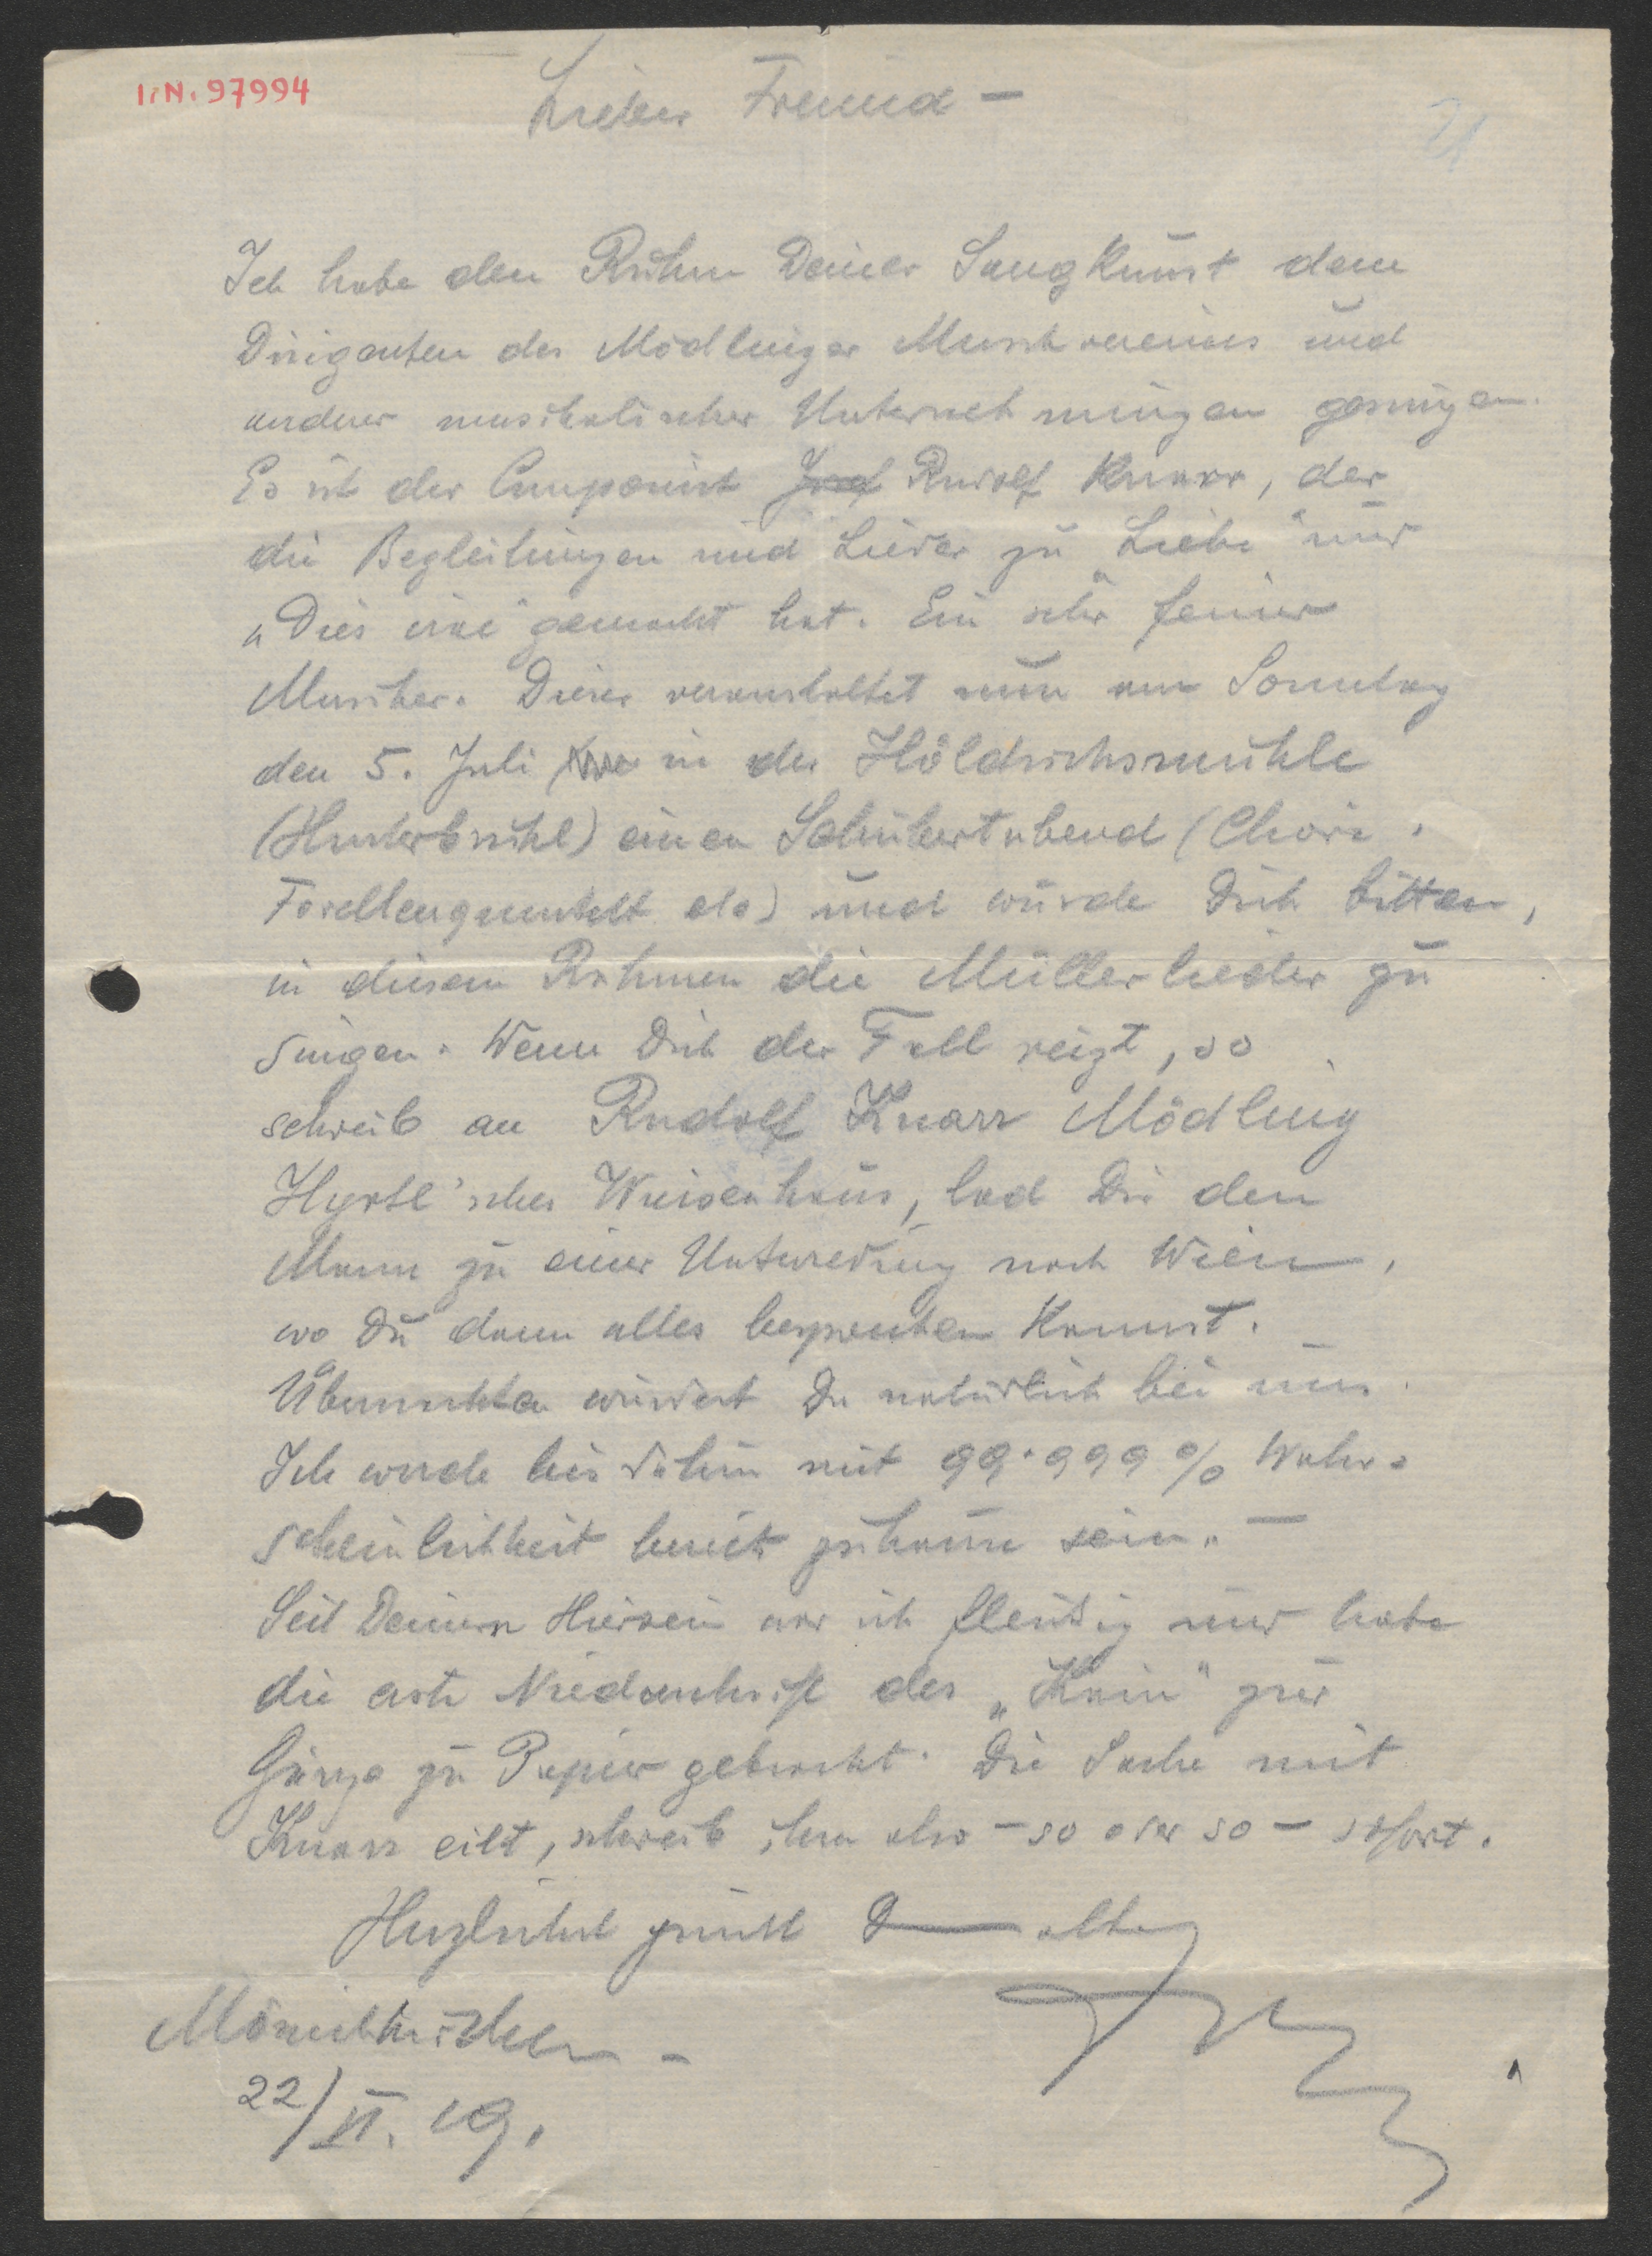 I.N. 97994
Lieber Freund –
21
Ich habe den Ruhm Deiner Sangkunst dem
Dirigenten des Mödlinger Musikvereines und
anderer musikalischer Unternehmungen gesungen.
Es ist der Componist Josef Rudolf Knarr, der
die Begleitungen und Lieder zu "Liebe" und
„Dies irae" gemacht hat. Ein sehr feiner
Musiker. Dieser veranstaltet nun am Sonntag
den 5. Juli in der Höldrichsmühle
(Hinterbrühl) einen Schubertabend (Chöre,
Forellenquintett etc) und würde Dich bitten,
in diesem Rahmen die Müllerlieder zu
singen. Wenn Dich der Fall reizt, so
schreib an Rudolf Knarr Mödling
Hyrtl'sches Waisenhaus, lad Dir den
Mann zu einer Unterredung nach Wien,
wo Du dann alles besprechen kannst.
Übernachten würdest Du natürlich bei uns.
Ich werde bis dahin mit 99·999 % Wahr-
scheinlichkeit bereits zuhause sein. —
Seit Deinem Hiersein war ich fleißig und habe
die erste Niederschrift des „Kain" zur
Gänze zu Papier gebracht. Die Sache mit
Knarr eilt, schreib ihm also – so oder so – sofort.
Herzlichst grüßt D— alter
Mönichkirchen –
22/VI. 19.